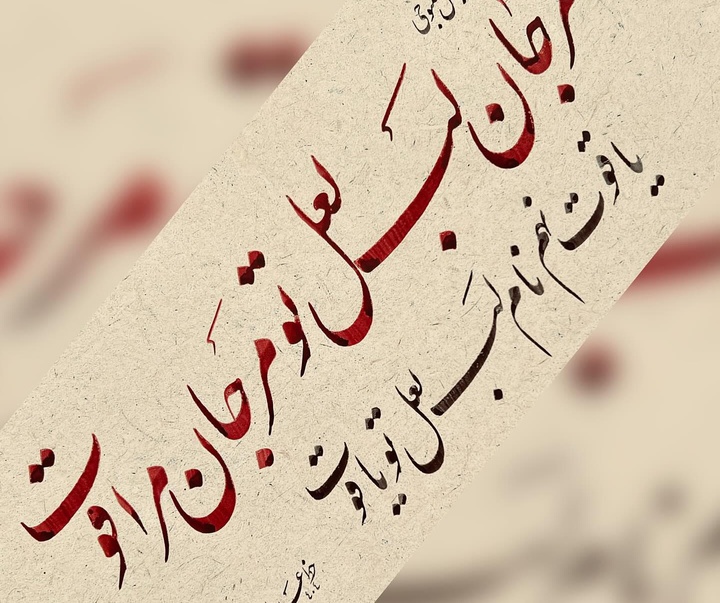 مرجان لب لعل تو مر جان مرا قوت
یاقوت نهم نام لب لعل تو یا قوت